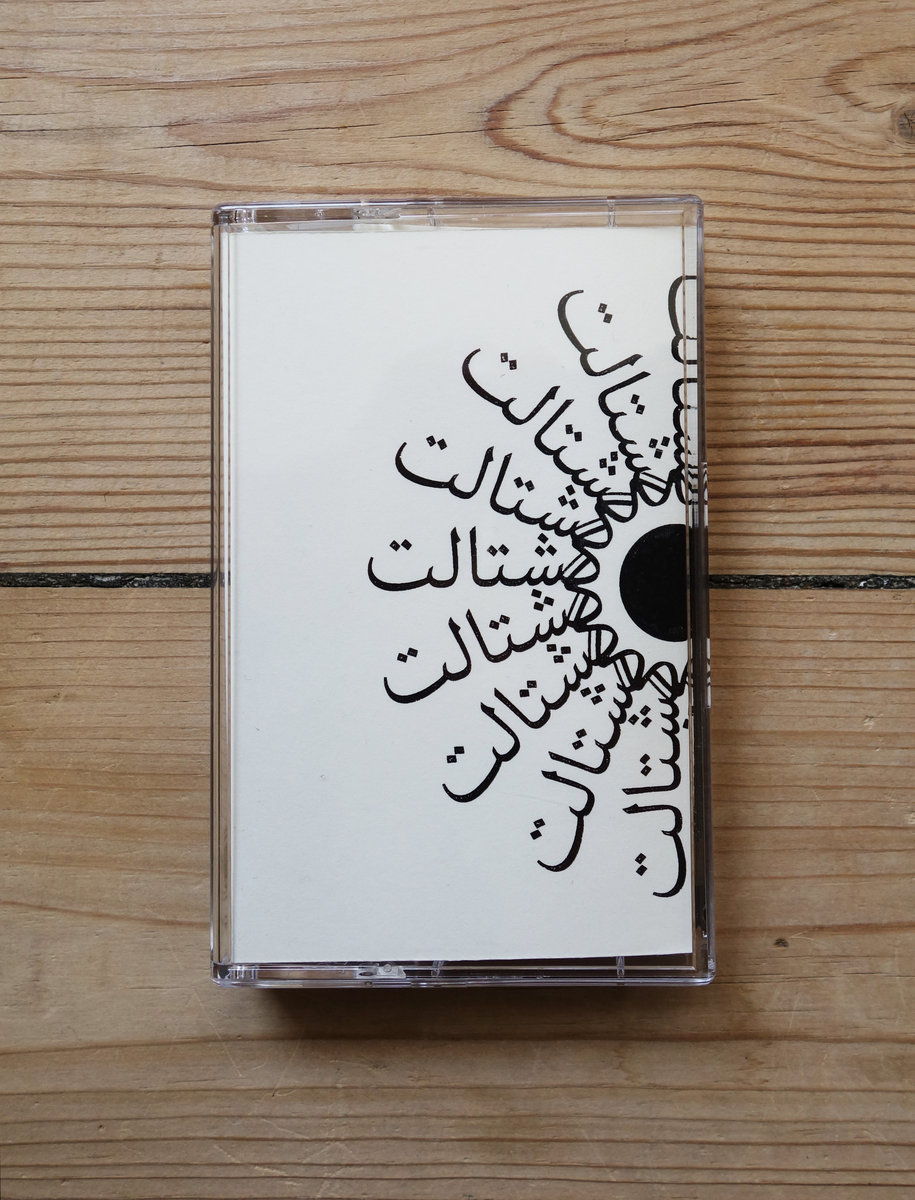 گشتالت
گشتالت
گشتالت
گشتالت
گشتالت
گشتالت
گشتالت
گشتالت